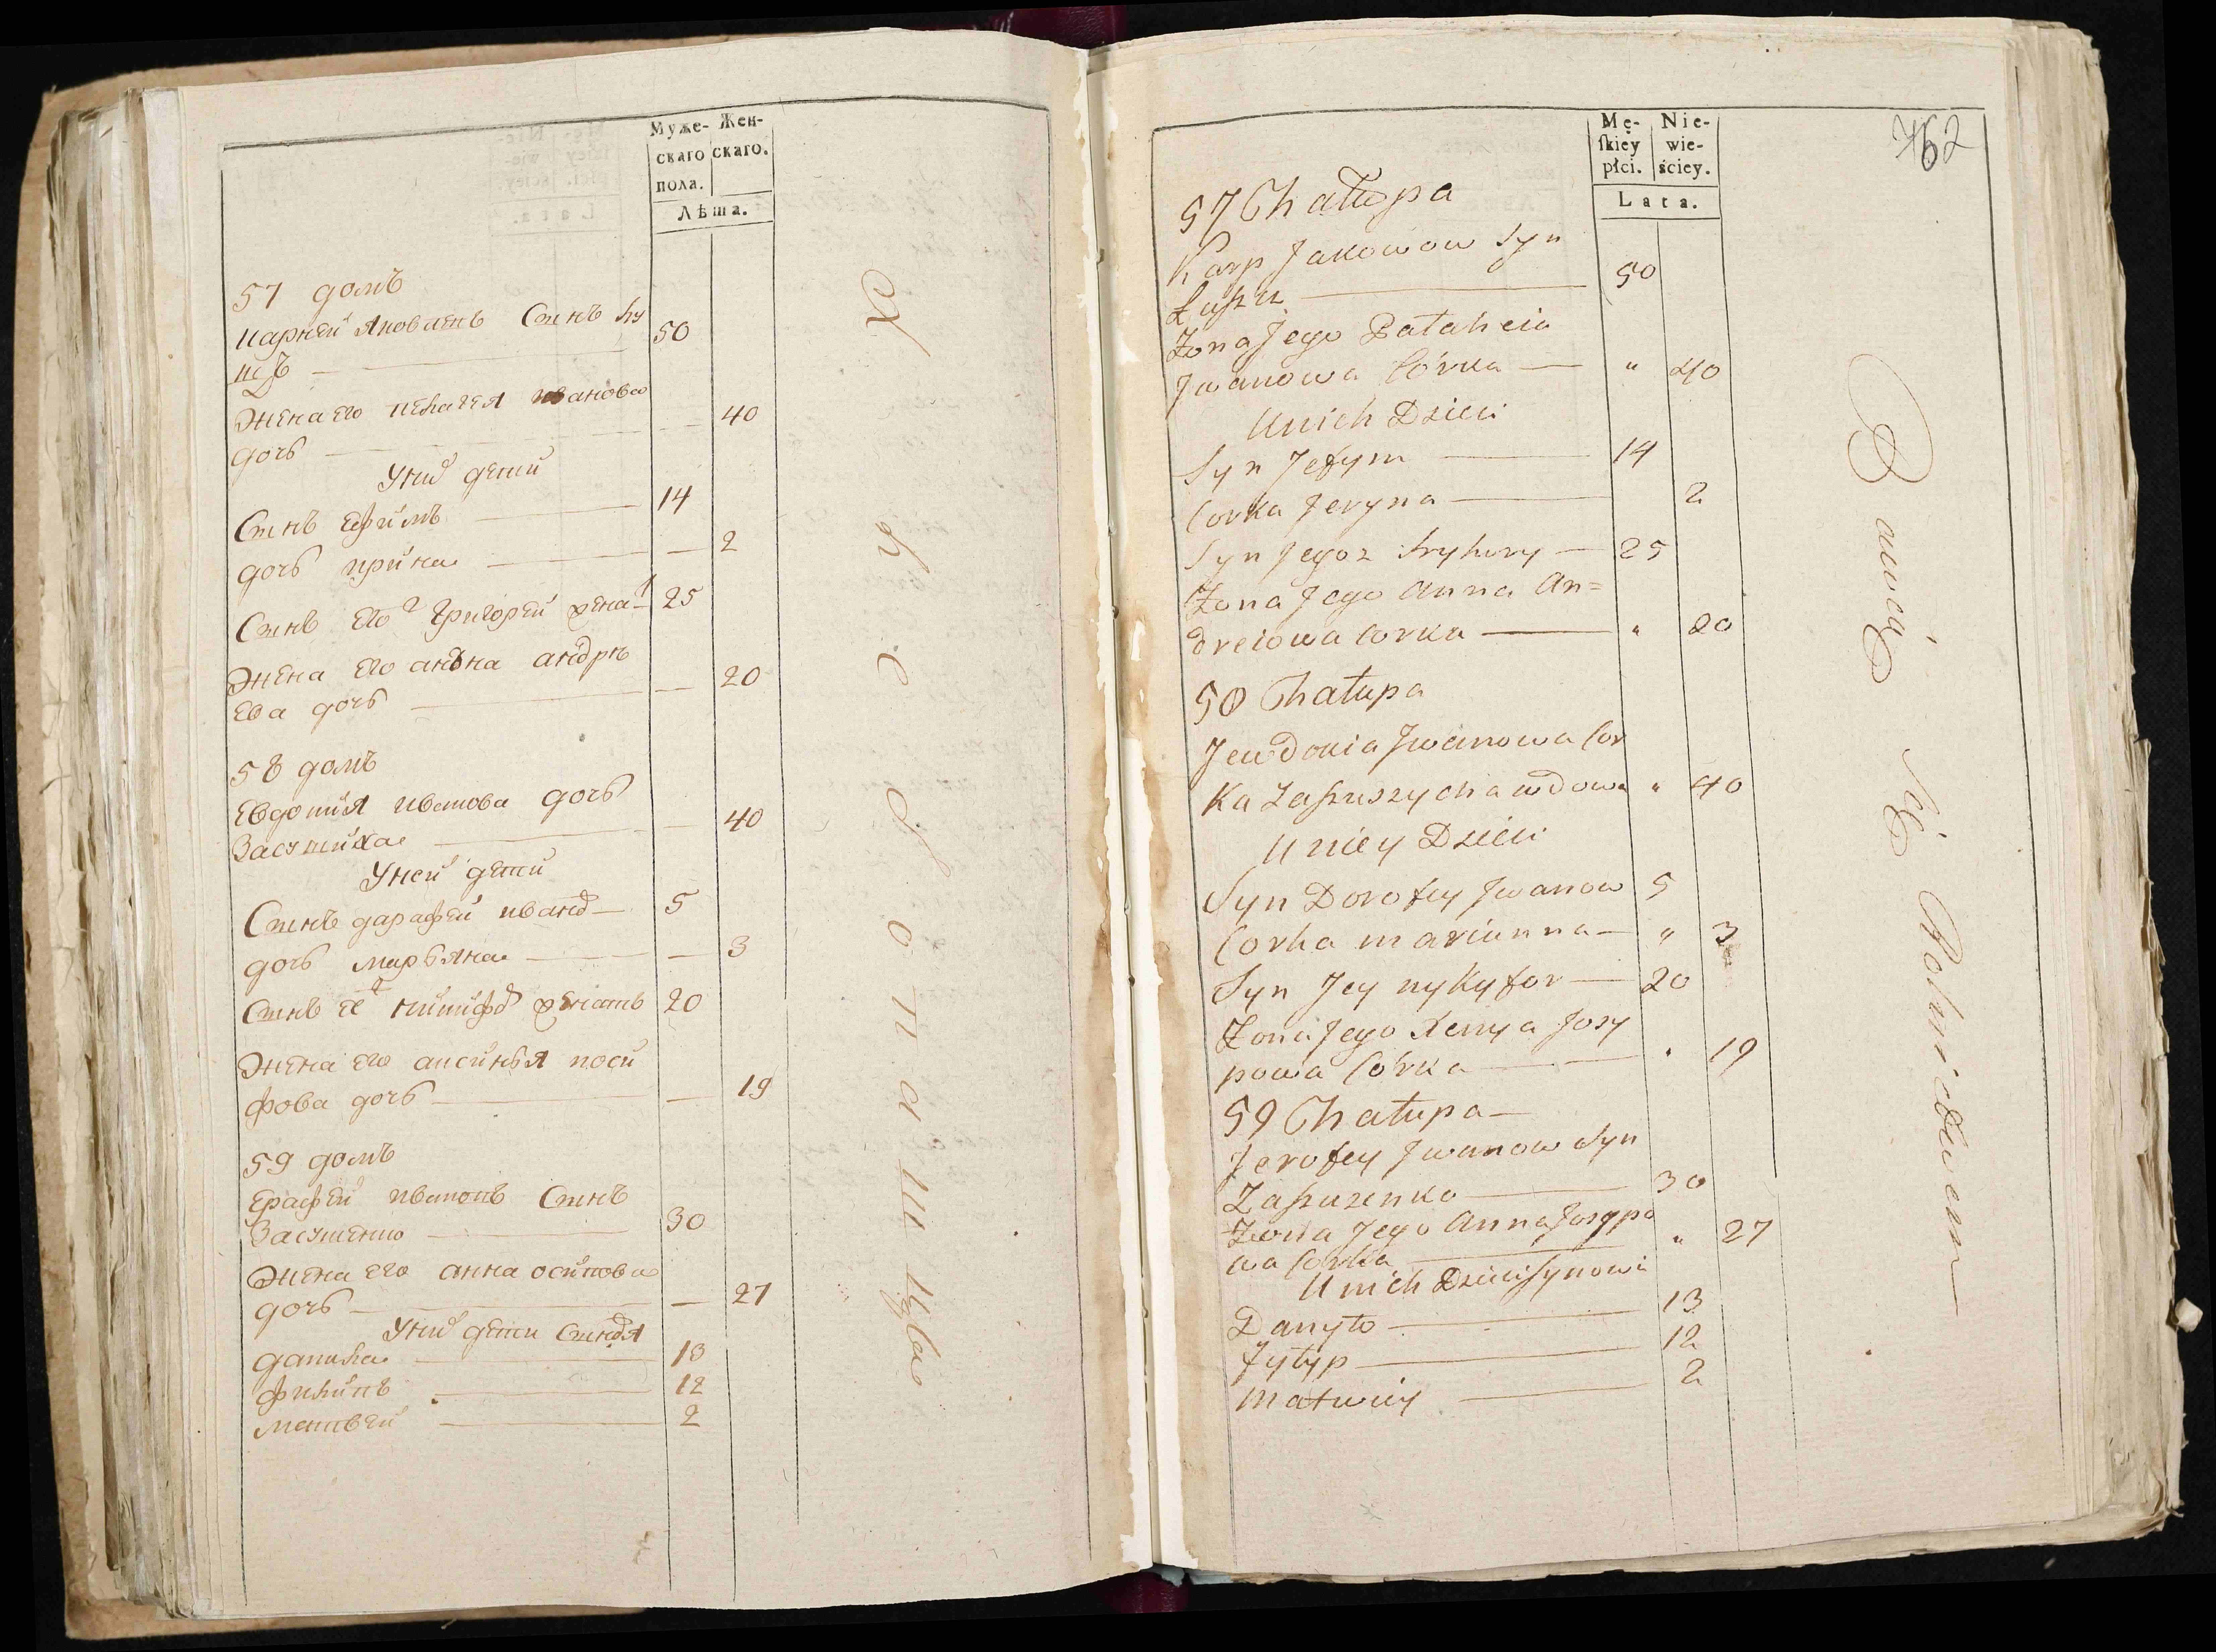 Муже- Жен-
скаго скаго.
пола.
Лѣта.
57 домъ
Карпей Яковлевъ Сынъ 50
Жена его пелагея иванова
дочь — — 40
Уних дети
Сынъ ефимъ — 14
дочь ирина — — 2
Сынъ его 2 григорей жена 1 25
Жена его анна андре
ева дочь — — 20
58 домъ
Евдокия иванова дочь
Засушиха — — 40
Уней дети
Сынъ дарафей иванов — 5
дочь марьяна — — 3
Сынъ ее никифор женатъ 20
Жена его аксинья иоси
фова дочь — — 19
59 домъ
Ерафей ивановъ Сынъ
30
Жена его анна осипова
дочь — — 27
Уних дети Сыновя
данила — 13
филипъ — 12
матвей — 2
762
Mę- Nie-
skiey wie-
płci. ściey.
Lata.
57 Chałupa
Karp Jakowow Syn
50
Zona Jego Pałaheia
Jwanowa Córka — " 40
Unich Dzieci
Syn Jefym — 14
Corka Jeryna — 2
Syn Jego 2 hryhory — 25
Zona Jego Anna An=
dreiowa Corka — " 20
58 Chałupa
Jewdokia Jwanowa Cor
ka Zasuszycha wdowa " 40
U niey Dzieci
Syn Dorofey Jwanow 5
Corka marianna — " 3
Syn Jey nykyfor — 20
Zona Jego Xenya Josy
powa Córka — " 19
59 Chałupa —
Jerofey Jwanow Syn
Zasuzenko — 30
Zona Jego Anna Josypo
wa Corka — " 27
U nich Dzieci Synowie
Danyło — 13
Fyłyp — 12
Matwiy — 2